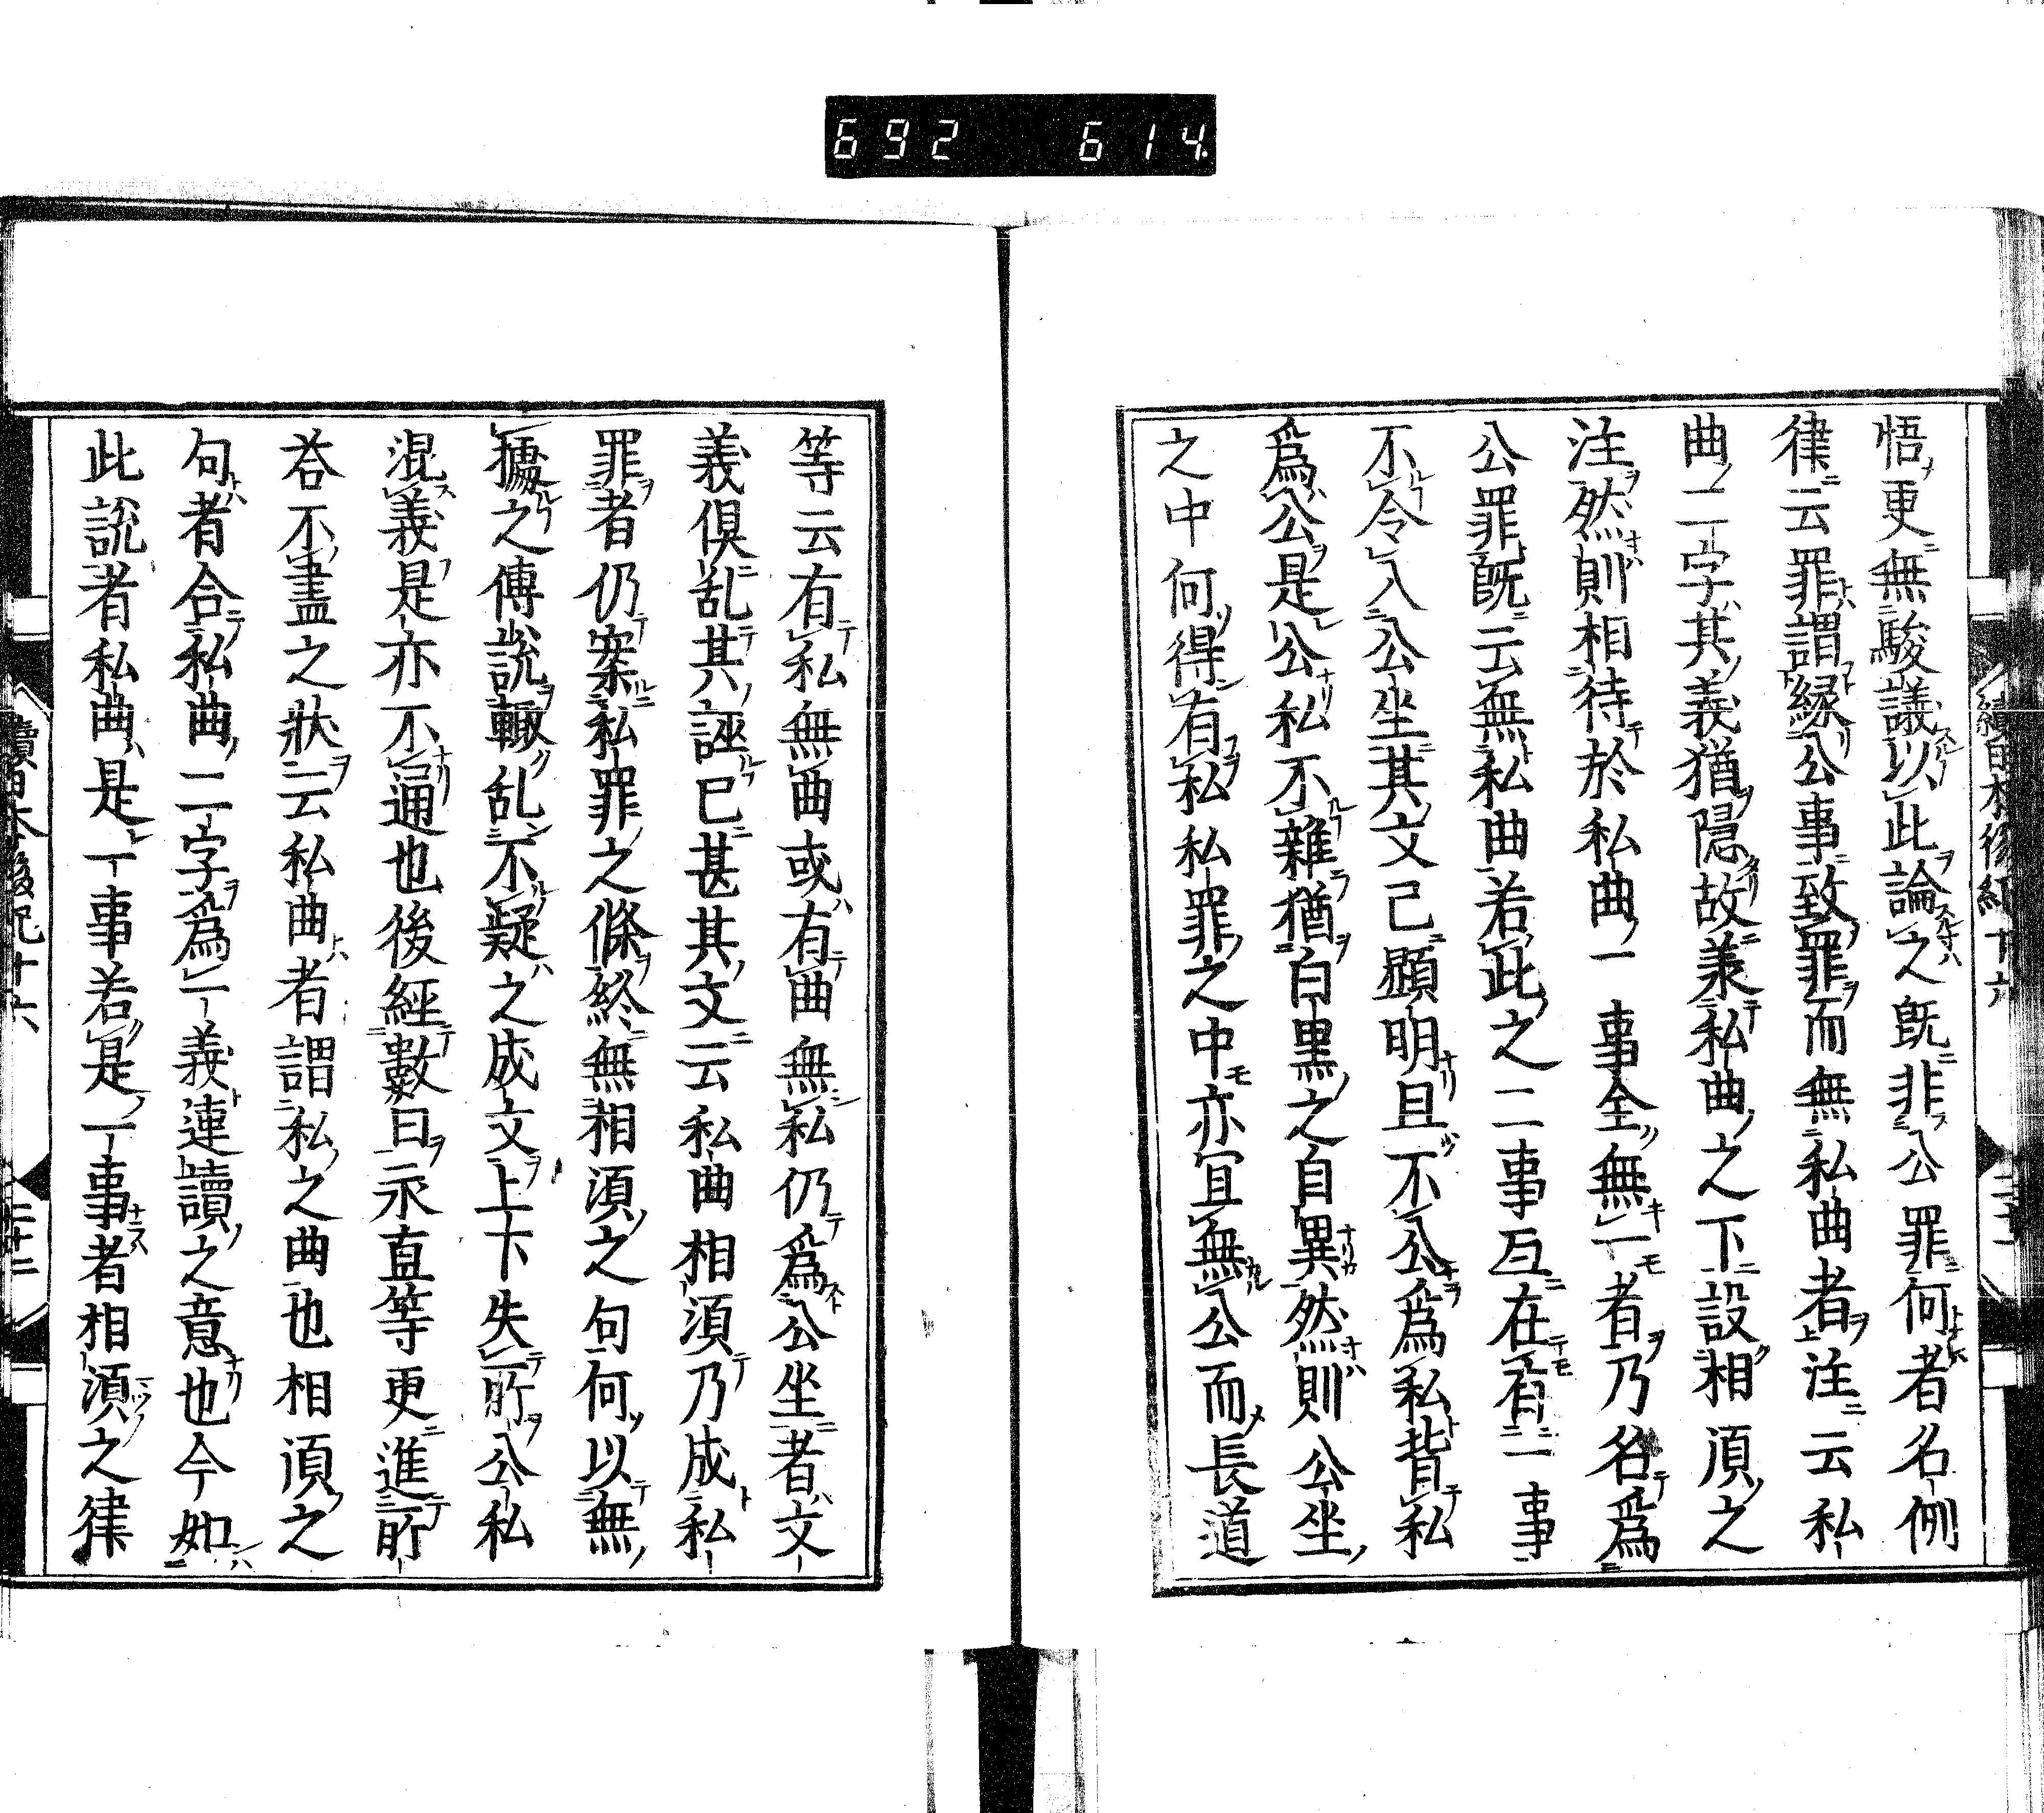 692 614
續日本後紀十六
悟更無駿議以此論之旣非公罪何者名例
律云罪謂縁公事致罪而無私曲者注云私
曲二字其義猶隠故兼私曲之下設相湏之
注然則相待於私曲一事全無一者乃名爲
公罪旣云無私曲若此之二事互在有一事
不令入公坐其文已顯明且不公爲私背私
爲公是公私不雜猶白黒之自異然則公坐
之中何得有私私罪之中亦冝無公而長道
等云有私無曲或有曲無私仍爲公坐者文
義倶乱其誣已甚其文云私曲相湏乃成私
罪者仍案私罪之條終無相湏之句何以無
據之傳說輙乱不疑之成文上下失所公私
混義是亦不通也後經數日永直等更進所
荅不盡之狀云私曲者謂私之曲也相湏之
句者合私曲二字爲一義連讀之意也今如
此說者私曲是一事若是一事者相湏之律
續日本後紀十六
二十二